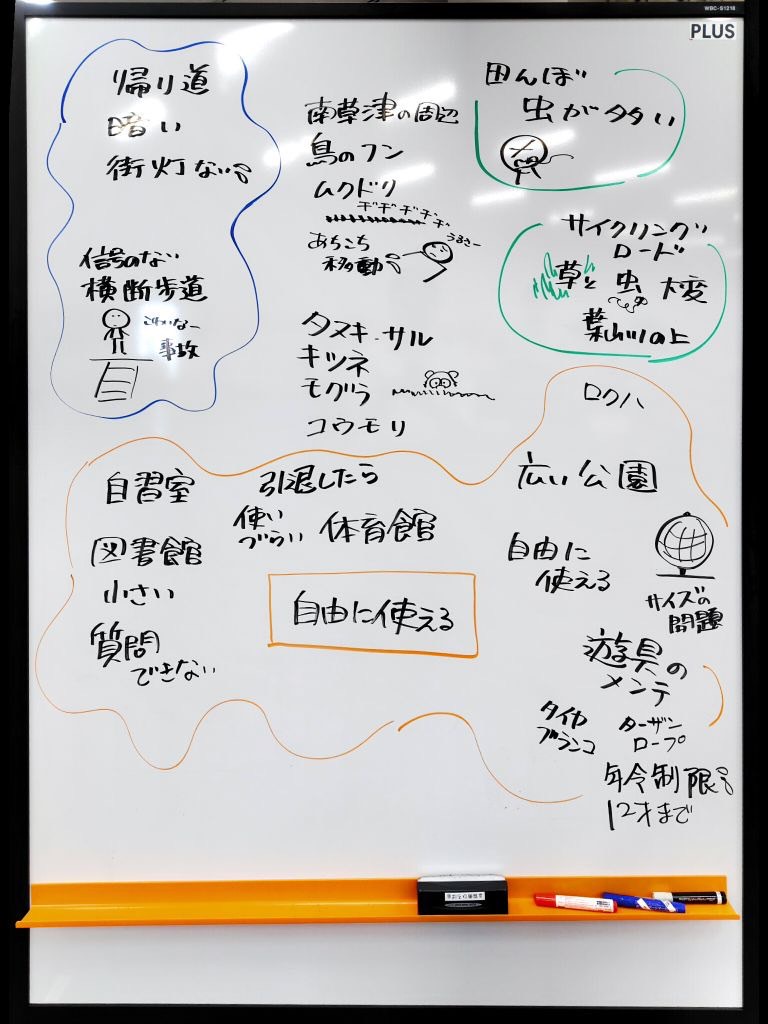 WBC-S1218
PLUS
帰り道
暗い
街灯ない
信号のない
横断歩道
こわいなー
事故
南草津の周辺
鳥のフン
ムクドリ
ヂヂヂヂヂ
あちこち
移動
うるさー
タヌキ・サル
キツネ
モグラ
コウモリ
田んぼ
虫が多い
サイクリング
ロード
草と虫 大変
葉山川の上
自習室
図書館
小さい
質問
できない
引退したら
使い
づらい
体育館
自由に使える
ロクハ
広い公園
自由に
使える
サイズの
問題
遊具の
メンテ
タイヤ
ブランコ
ターザン
ロープ
年令制限
12才まで